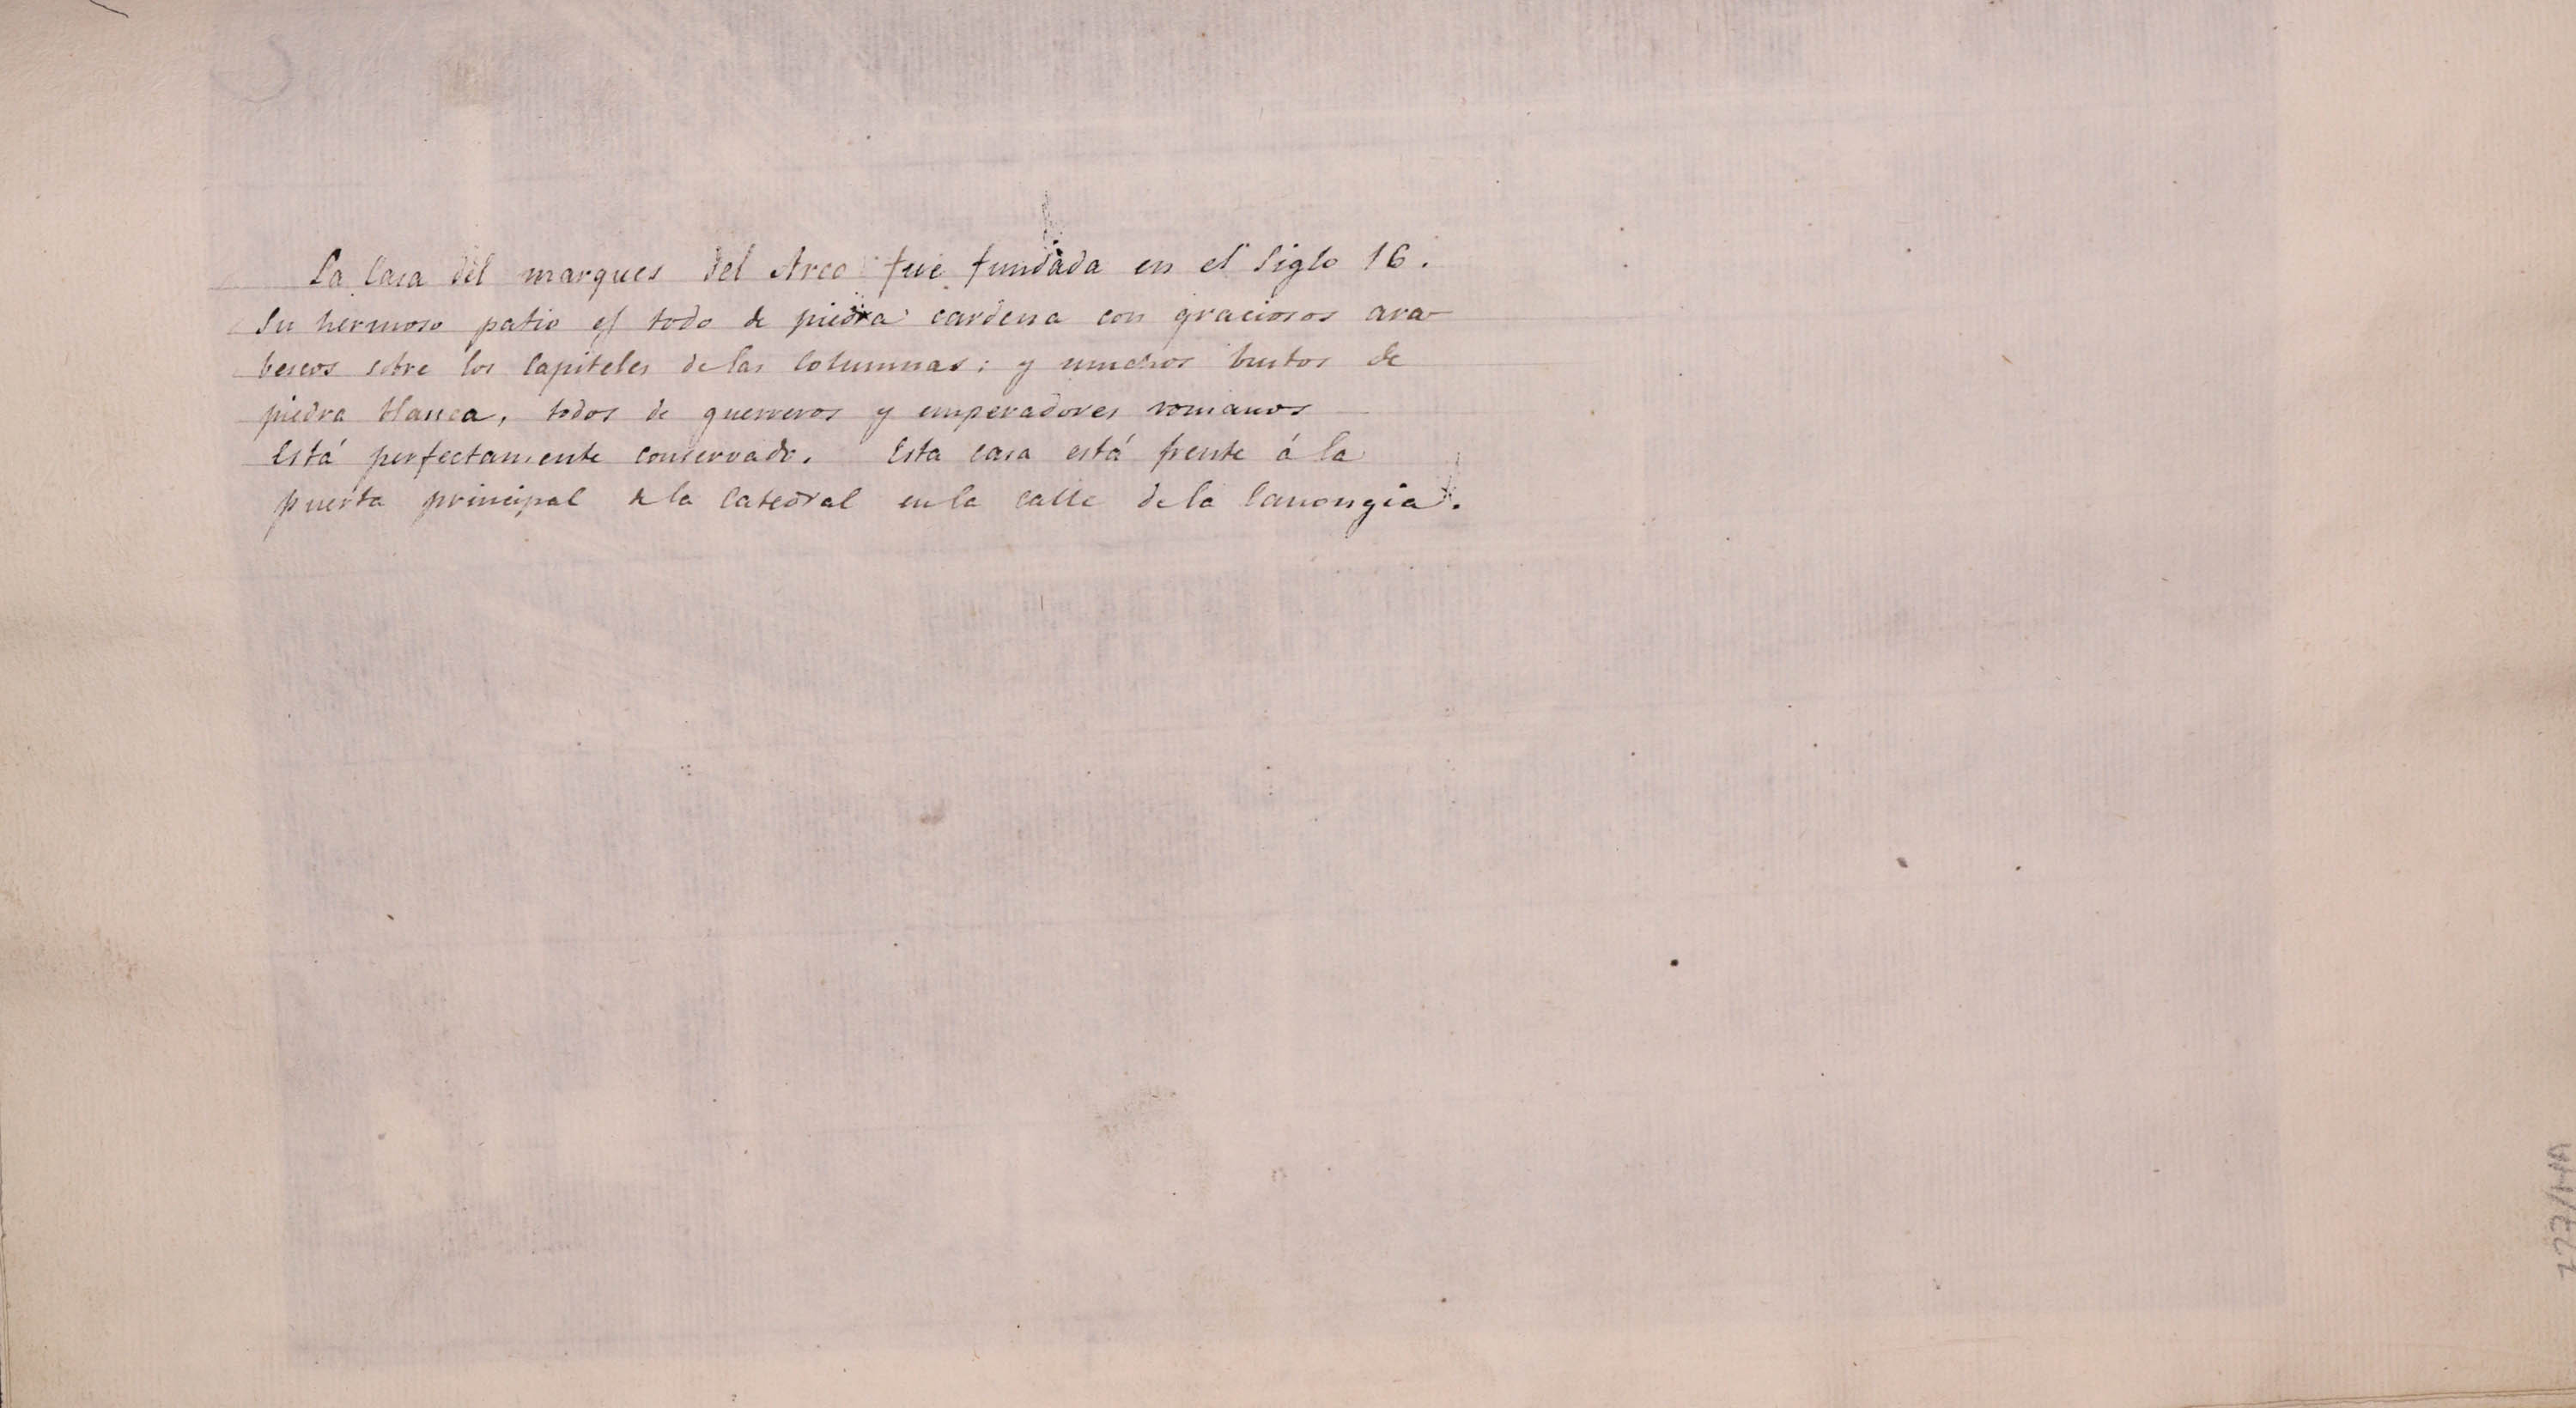 La Casa del marques del Arco fué fundada en el Siglo 16.
Su hermoso patio es todo de piedra cardena con graciosos ara-
bescos sobre los Capiteles de las Columnas: y muchos bustos de
piedra blanca, todos de guerreros y emperadores romanos
Está perfectamente conservado. Esta casa está frente á la
puerta principal de la Catedral en la calle de la Canongia.